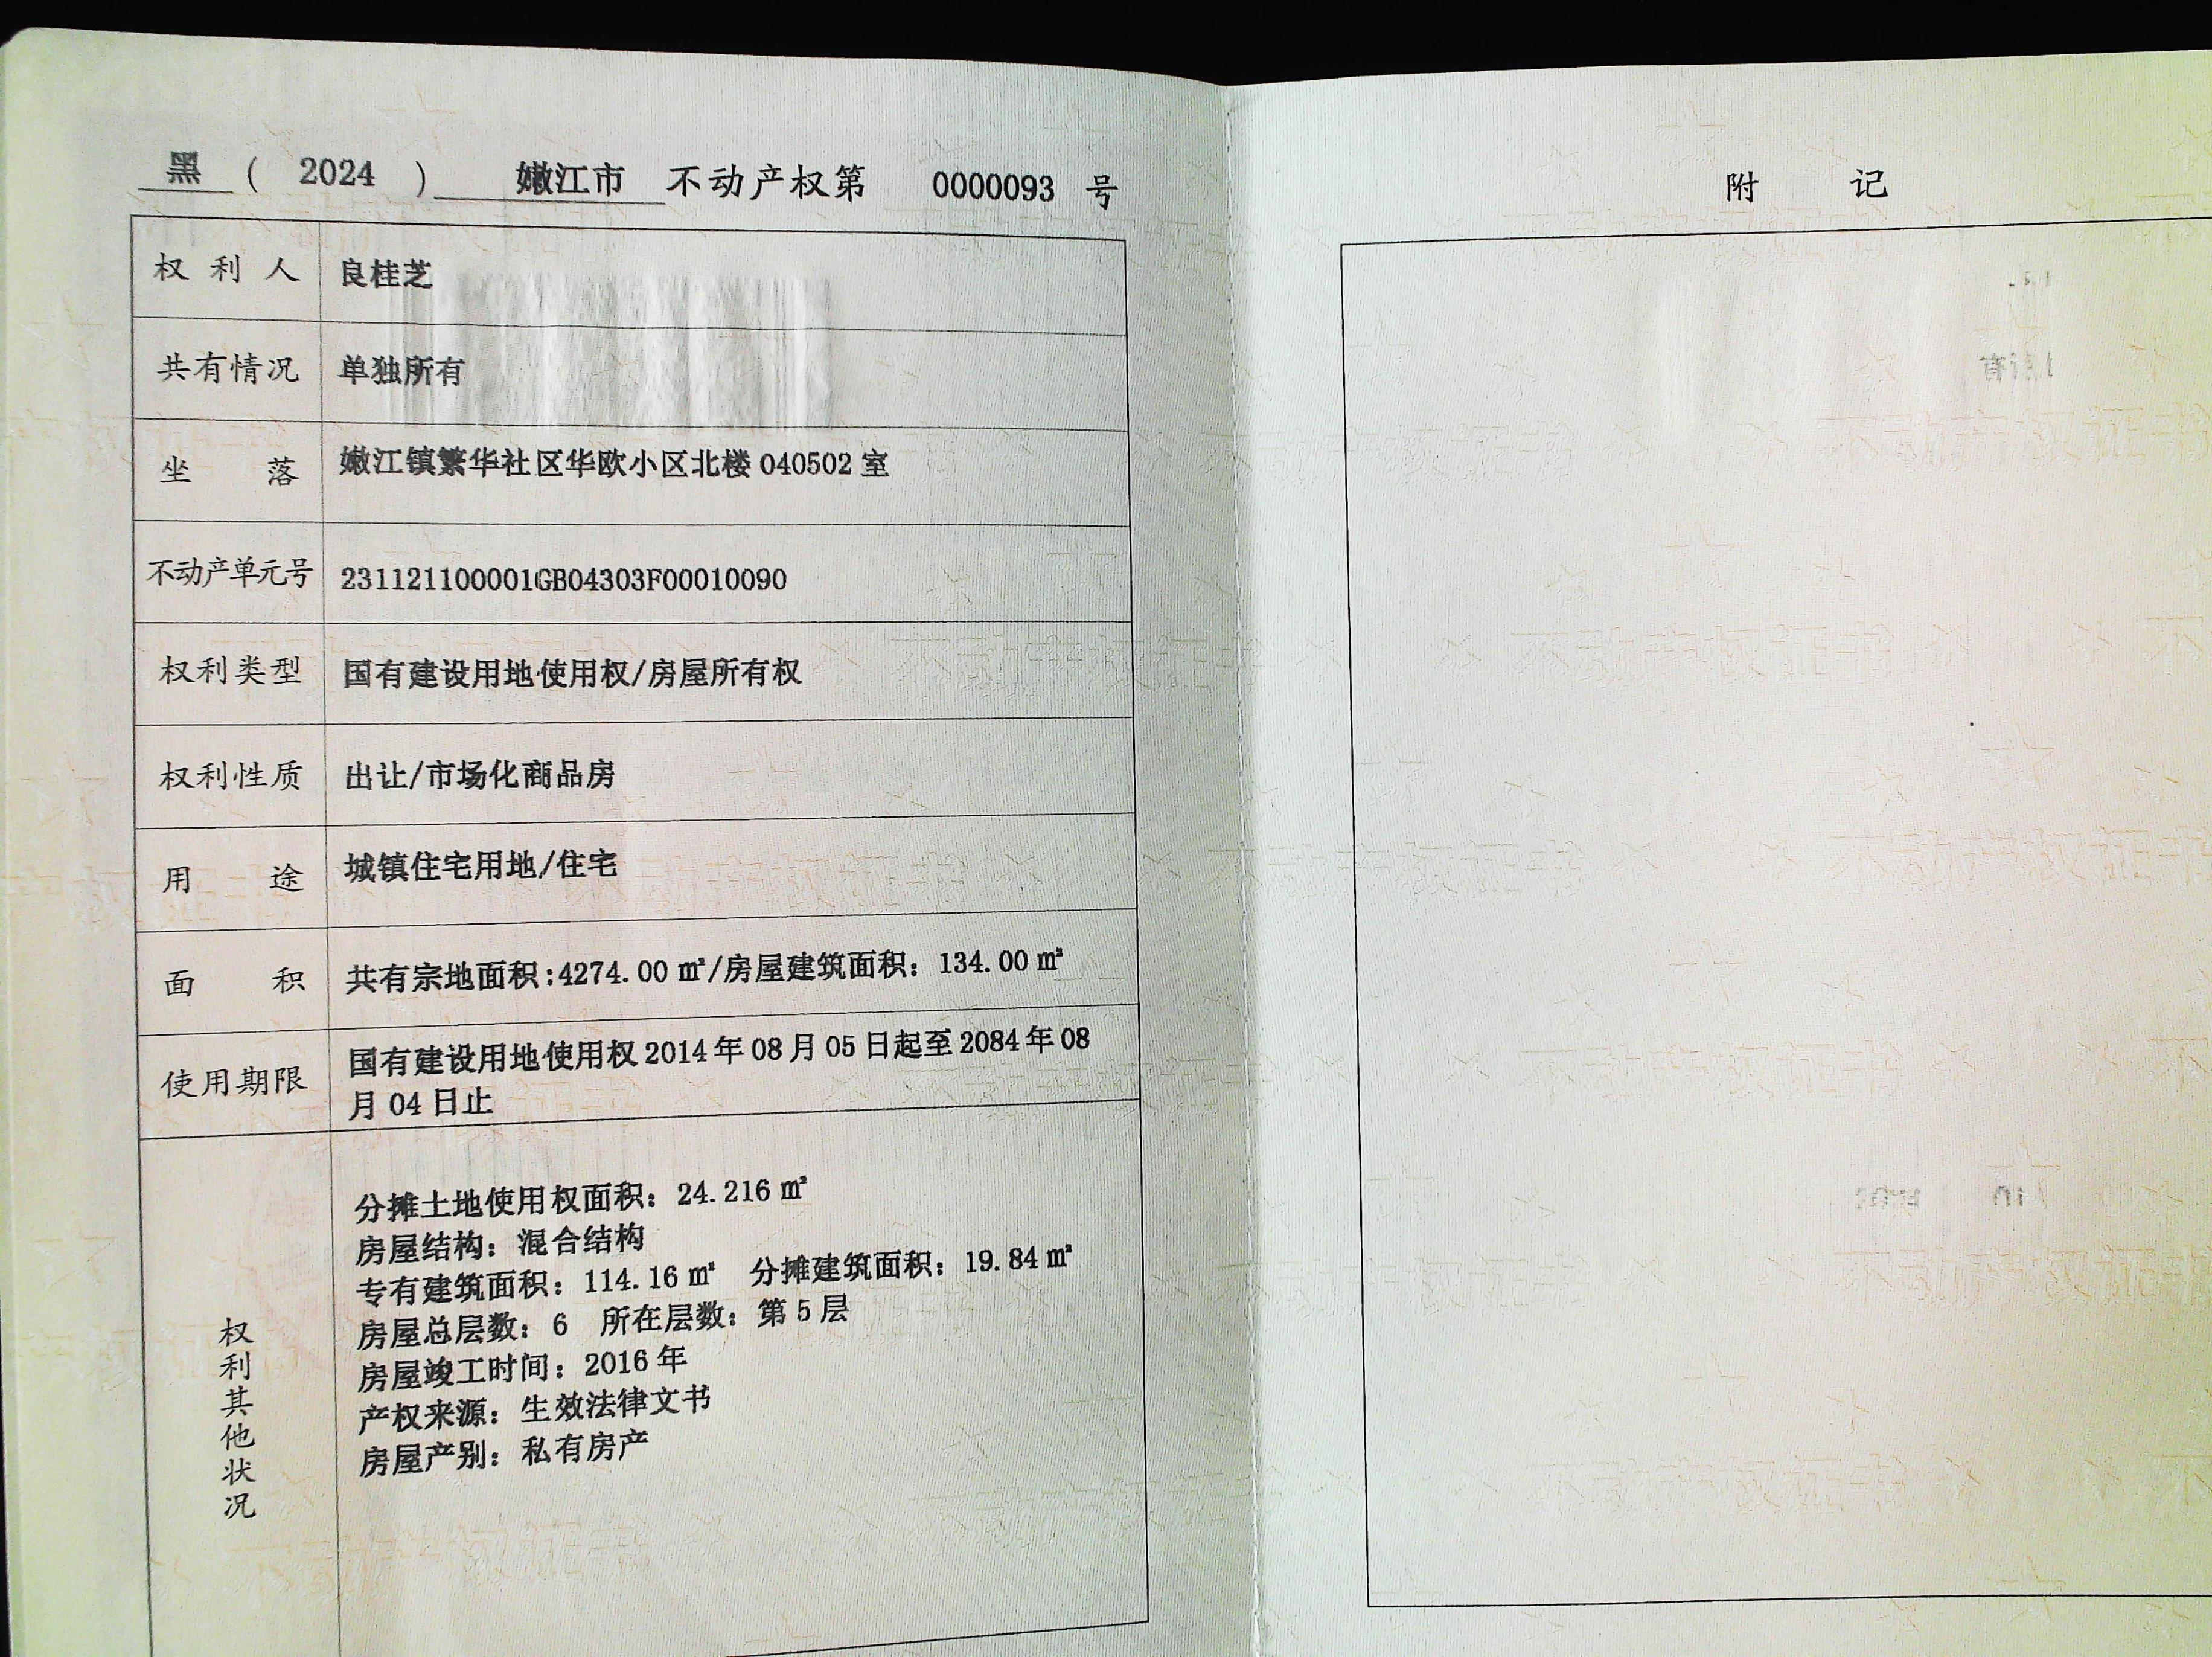 黑 ( 2024 ) 嫩江市 不动产权第 0000093 号
权利人 良桂芝
共有情况 单独所有
坐落 嫩江镇繁华社区华欧小区北楼 040502 室
不动产单元号 231121100001GB04303F00010090
权利类型 国有建设用地使用权/房屋所有权
权利性质 出让/市场化商品房
用途 城镇住宅用地/住宅
面积 共有宗地面积:4274.00 ㎡/房屋建筑面积：134.00 ㎡
使用期限 国有建设用地使用权 2014 年 08 月 05 日起至 2084 年 08
月 04 日止
权利其他状况
分摊土地使用权面积：24.216 ㎡
房屋结构：混合结构
专有建筑面积：114.16 ㎡ 分摊建筑面积：19.84 ㎡
房屋总层数：6 所在层数：第 5 层
房屋竣工时间：2016 年
产权来源：生效法律文书
房屋产别：私有房产
附记